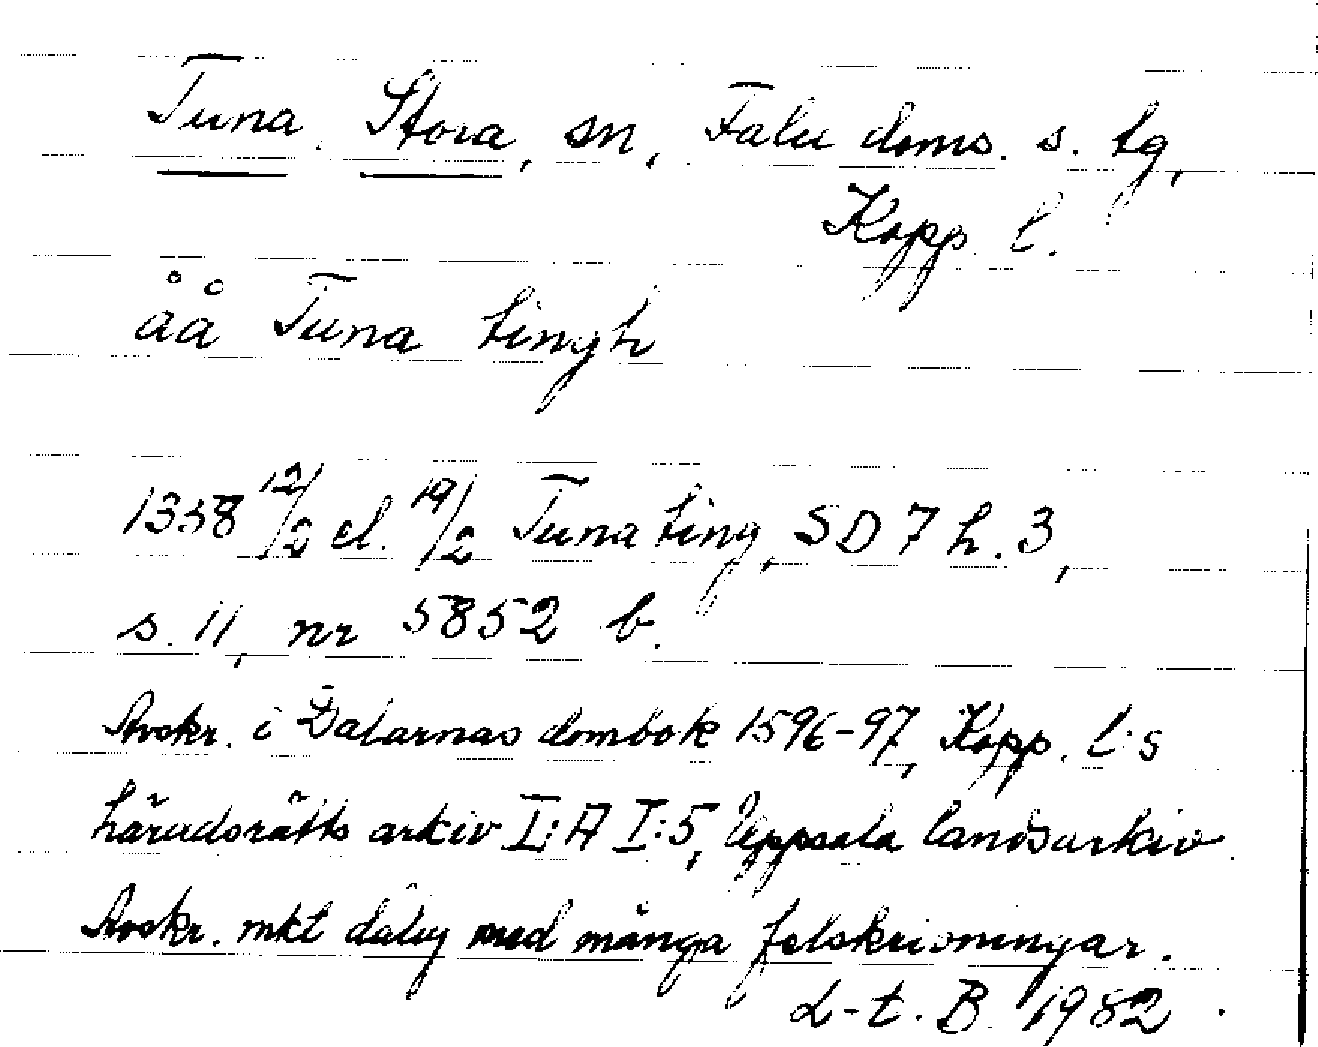 Tuna, Stora, sn, Falu doms. s. tg,
Kopp. l.
åå Tuna tingh
1358 12/2 el. 19/2 Tuna ting, SD 7 h. 3,
s. 11, nr 5852 b.
Avskr. i Dalarnas dombok 1596-97, Kopp. l:s
häradsrätts arkiv I:A I:5, Uppsala landsarkiv.
Avskr. mkt dålig med många felskrivningar.
L-t. B. 1982